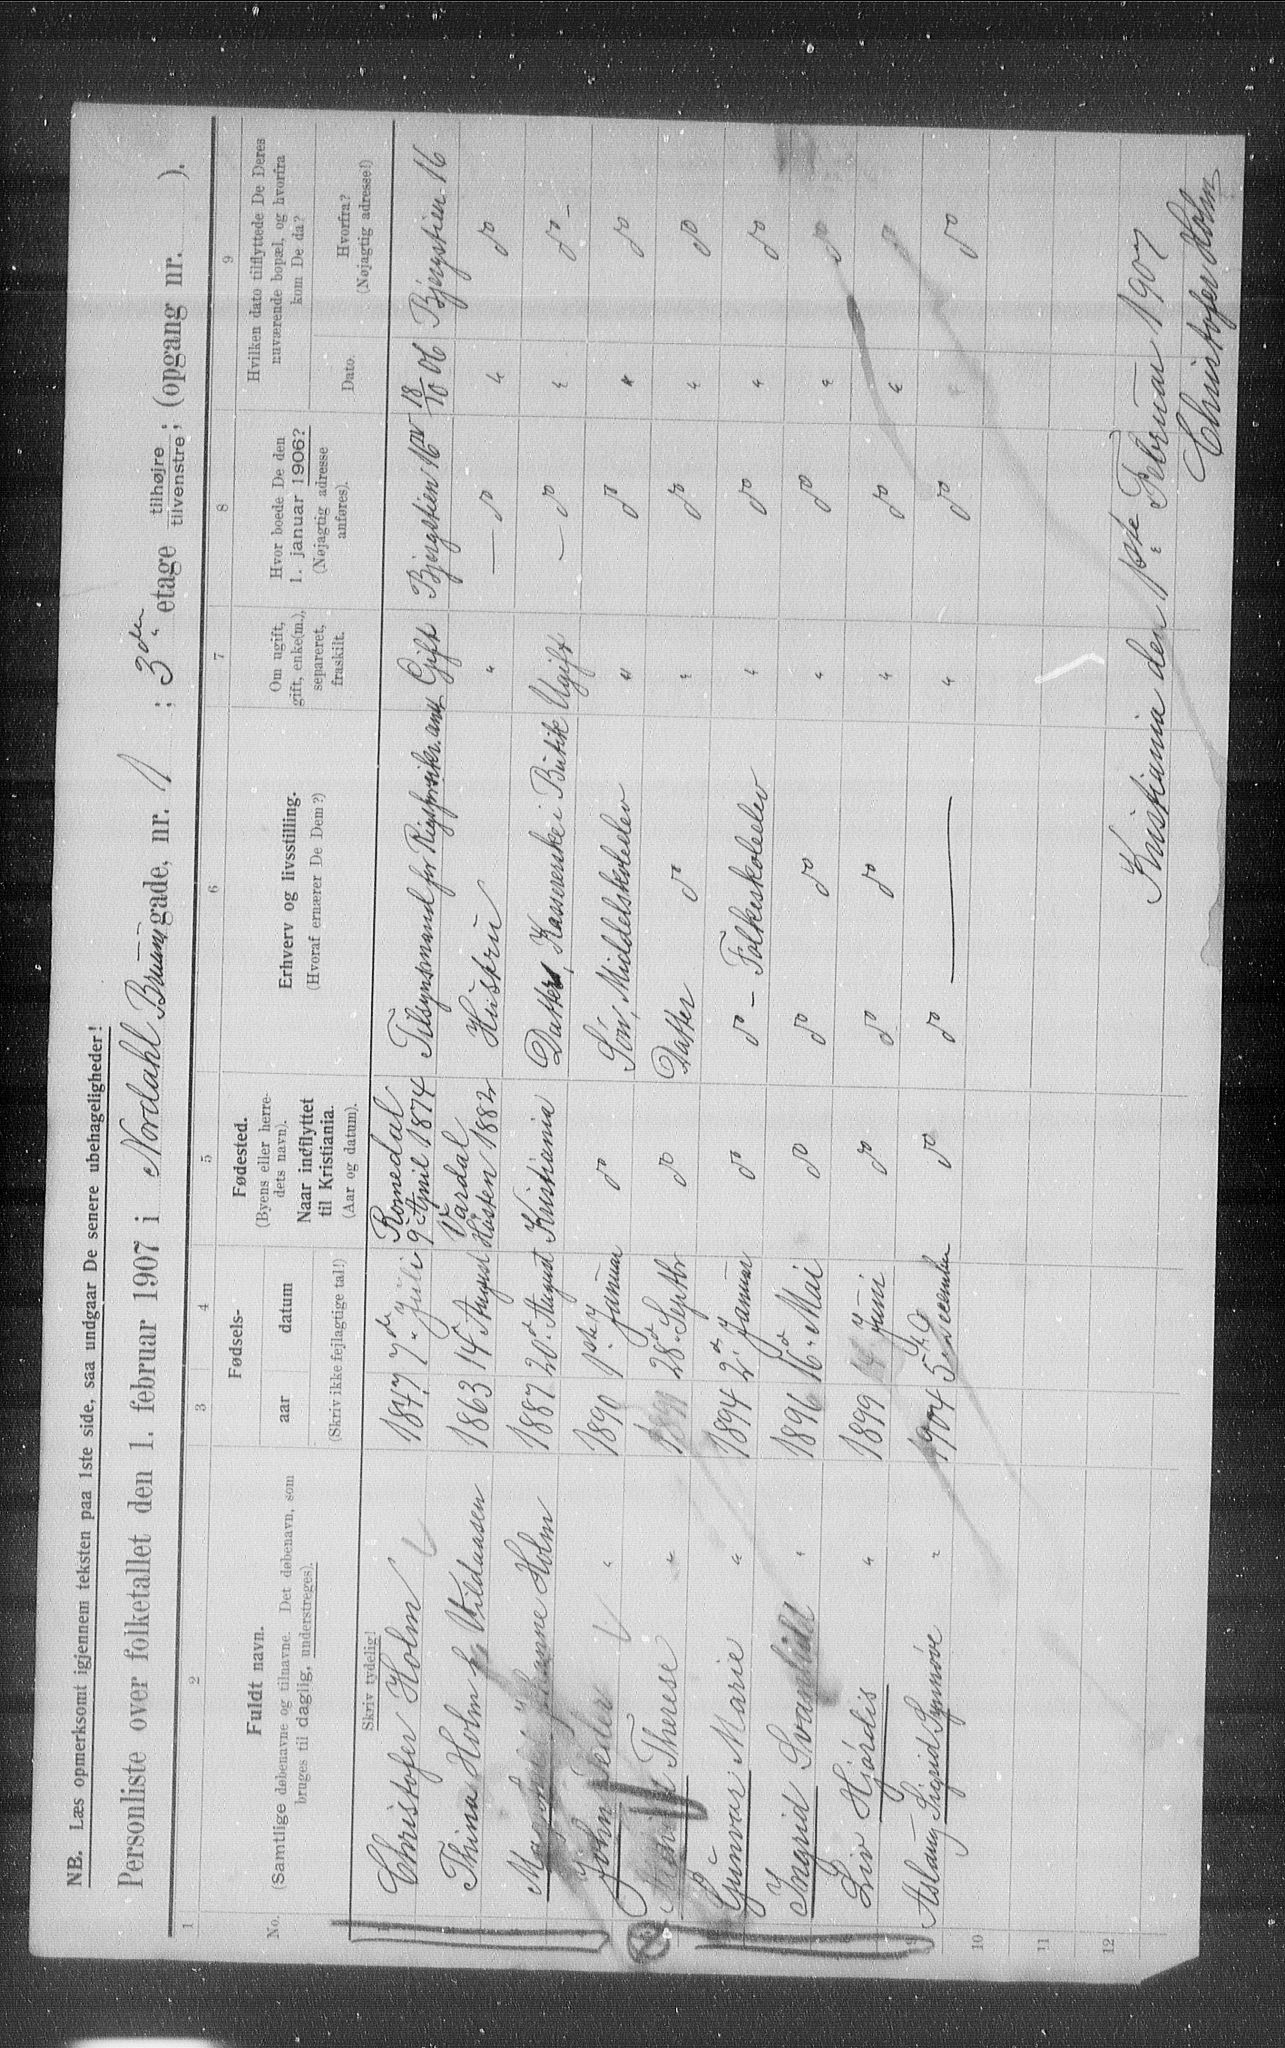 NB. Læs opmerksomt igjennem teksten paa 1ste side, saa undgaar De senere ubehageligheder!
Personliste over folketallet den 1. februar 1907 i Nordahl Bruunsgade, nr. 1 ; 3den etage tilhøjre tilvenstre; (opgang nr. ).
1 2 3 4 5 6 7 8 9
No.
Fuldt navn.
(Samtlige døbenavne og tilnavne. Det døbenavn, som
bruges til daglig, understreges).
Fødsels-
aar datum
(Skriv ikke fejlagtige tal!)
Fødested.
(Byens eller herre-
dets navn).
Naar indflyttet
til Kristiania.
(Aar og datum).
Erhverv og livsstilling.
(Hvoraf ernærer De Dem?)
Om ugift,
gift, enke(m.),
separeret,
fraskilt.
Hvor boede De den
1. januar 1906?
(Nøjagtig adresse
anføres).
Hvilken dato tilflyttede De Deres
nuværende bopæl, og hvorfra
kom De da?
Dato.
Hvorfra?
(Nøjagtig adresse!)
Skriv tydelig!
Christofer Holm 1847 7de Juli Romedal 9 April 1874 Tilsynsmand for Gift Bjergstien 16 18/10 06 Bjergstien 16
Thina Holm f. Wildaasen 1863 14 August Vardal Høsten 1882 Hustru " — do " do
Johanne Holm 1887 20de August Kristiania Datter, Kassererske i Butik Ugift — do " do -
John Peder " 1890 1ste Januar do Søn, Middelskoleelev " do " do
Therese " 28de Septbr do Datter do " do " do
Gunvar Marie " 1894 2den Januar do do - Folkeskoleelev " do " do
Ingrid Svanhild " 1896 16de Mai do do do " do " do
Liv Hjørdis " 1899 14 Juni do do do " do " do
9 Aslaug Sigrid Synnøve " 1904 5te December do do — " do " do
10
11
12
Kristiania den 1ste Februar 1907
Christofer Holm